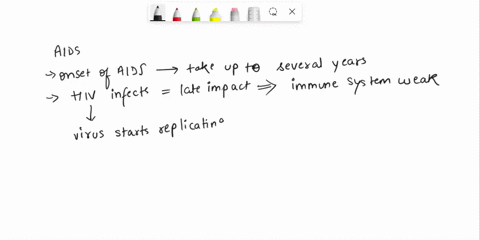 AIDS
→ onset of AIDS → take up to several years
→ HIV infects = late impact ⇒ immune system weak
↓
virus starts replicating